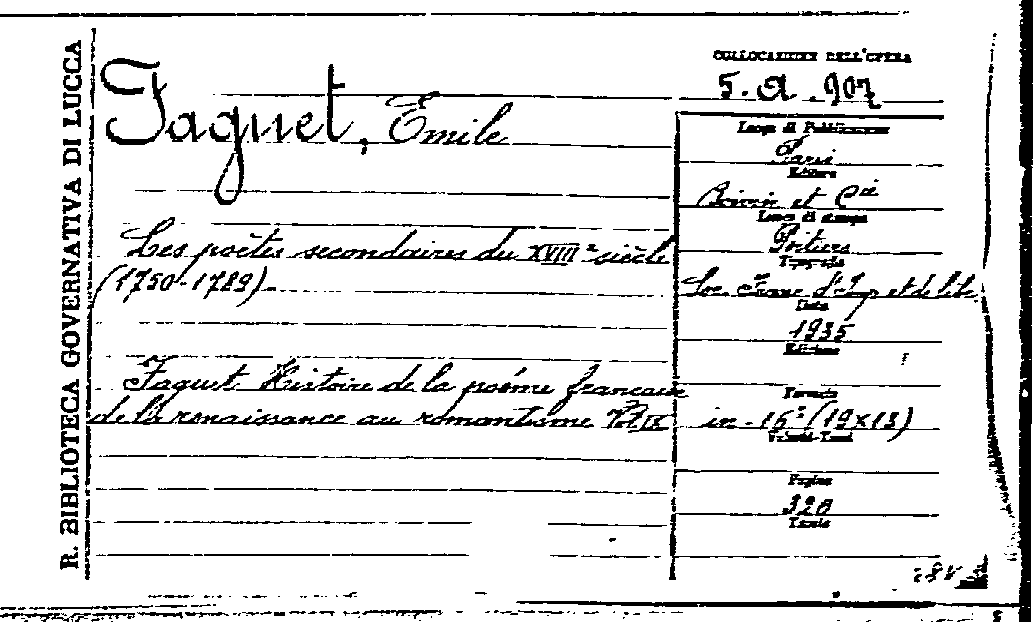 R. BIBLIOTECA GOVERNATIVA DI LUCCA
COLLOCAZIONE DELL'OPERA
5. a. 907
Faguet, Emile
Luogo di Pubblicazione
Paris
Editore
Boivin et Cie
Luogo di stampa
Poitiers
Tipografia
Soc. Franc. d'Imp et de lib.
Data
1935
Edizione
Les poètes secondaires du XVIIIe siècle
(1750-1789)
Faguet. Histoire de la poésie française
de la renaissance au romantisme
Formato
in-16° (19x13)
Volumi-Tomi
Pagine
320
Tavole